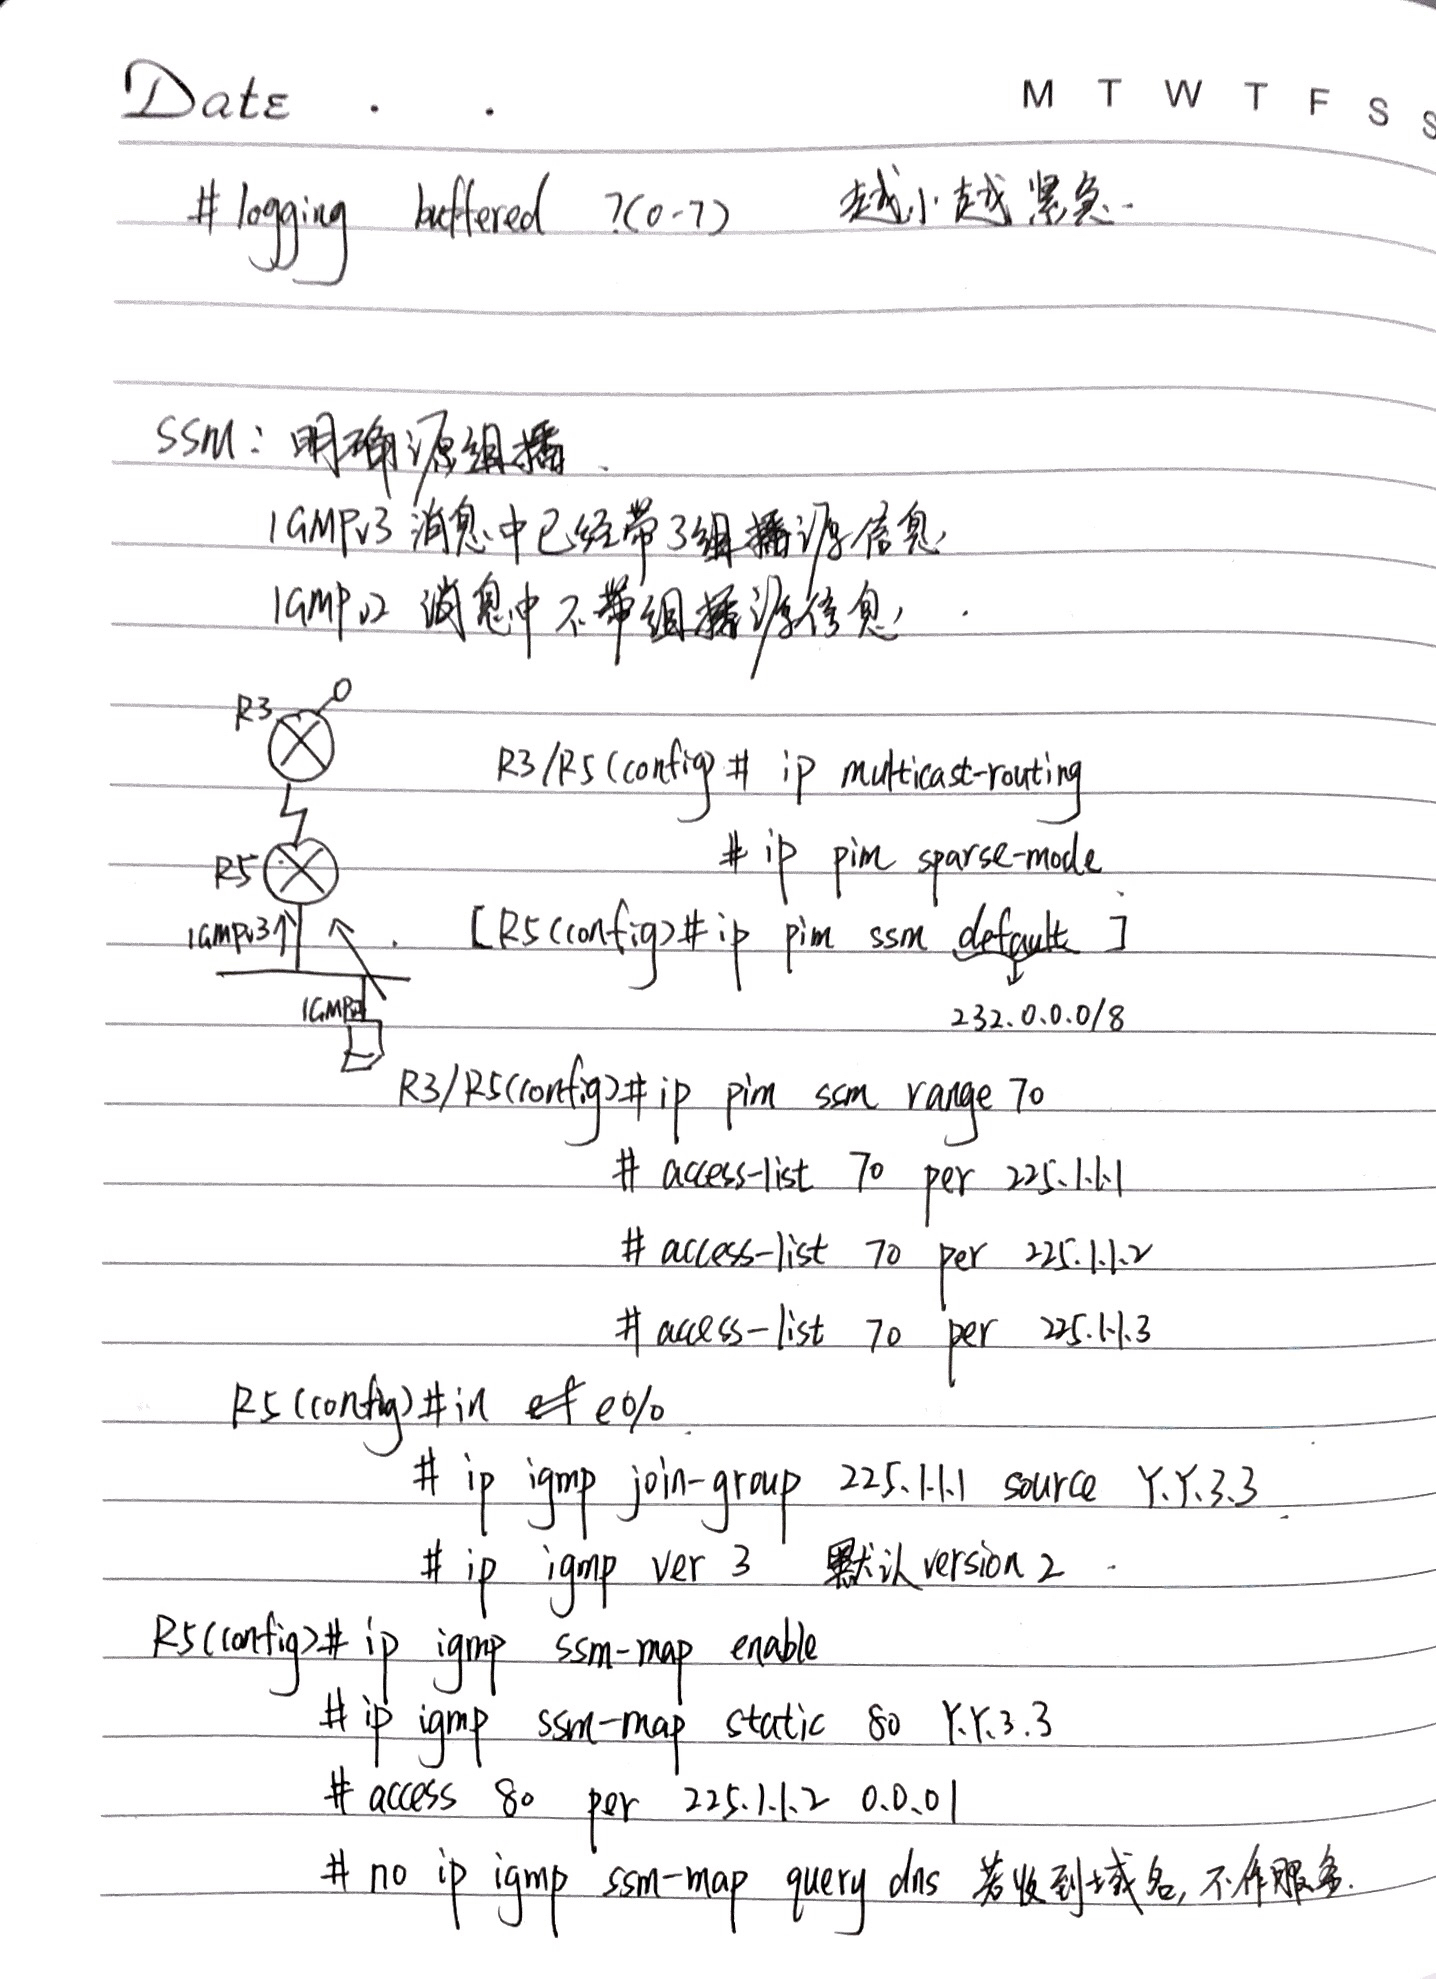 Date . .
M T W T F S S
# logging buffered ?(0-7) 越小越紧急.
SSM: 明确源组播.
IGMPv3 消息中已经带了组播源信息
IGMPv2 消息中不带组播源信息
R3
R3/R5(config)# ip multicast-routing
# ip pim sparse-mode
R5
IGMPv3
[R5(config)# ip pim ssm default]
IGMPv2
232.0.0.0/8
R3/R5(config)# ip pim ssm range 70
# access-list 70 per 225.1.1.1
# access-list 70 per 225.1.1.2
# access-list 70 per 225.1.1.3
R5(config)# in e0/0
# ip igmp join-group 225.1.1.1 source Y.Y.3.3
# ip igmp ver 3 默认version 2
R5(config)# ip igmp ssm-map enable
# ip igmp ssm-map static 80 Y.Y.3.3
# access 80 per 225.1.1.2 0.0.01
# no ip igmp ssm-map query dns 若收到域名,不作服务.